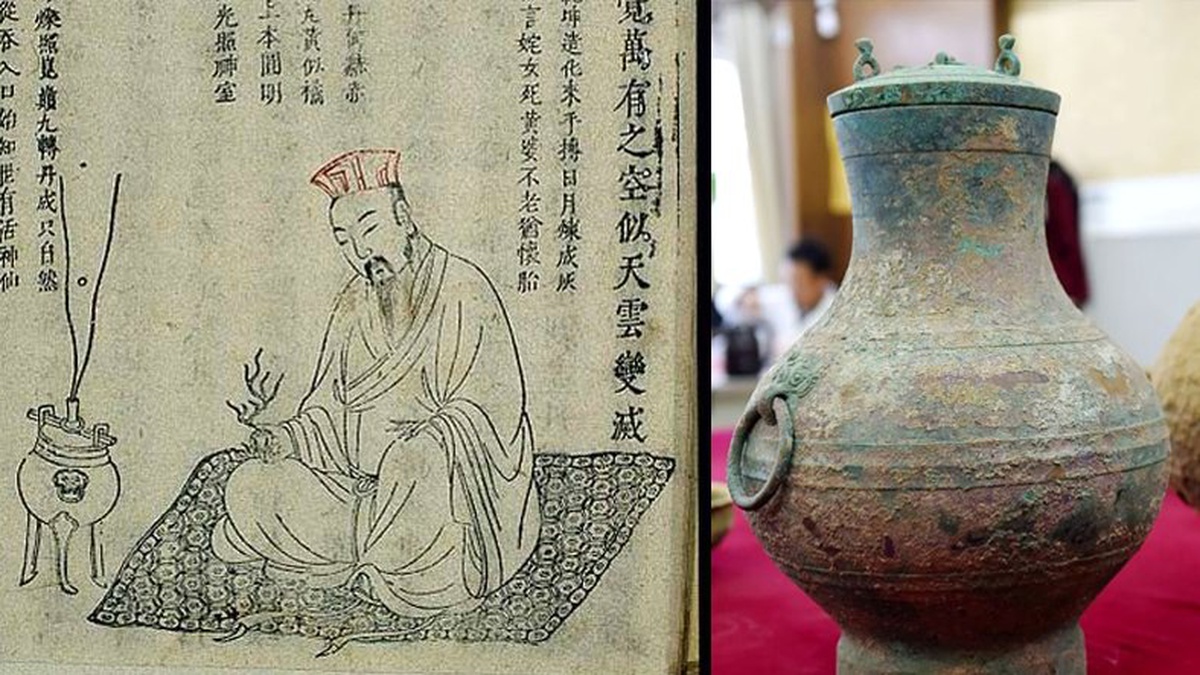 萬有之空似天雲變滅
坤造化來手摶日月煉成灰
言姹女死黃婆不老猶懷胎
赫赤
黃似橘
本圓明
光照神室
九轉丹成只自然
吞入口始知世有活神仙